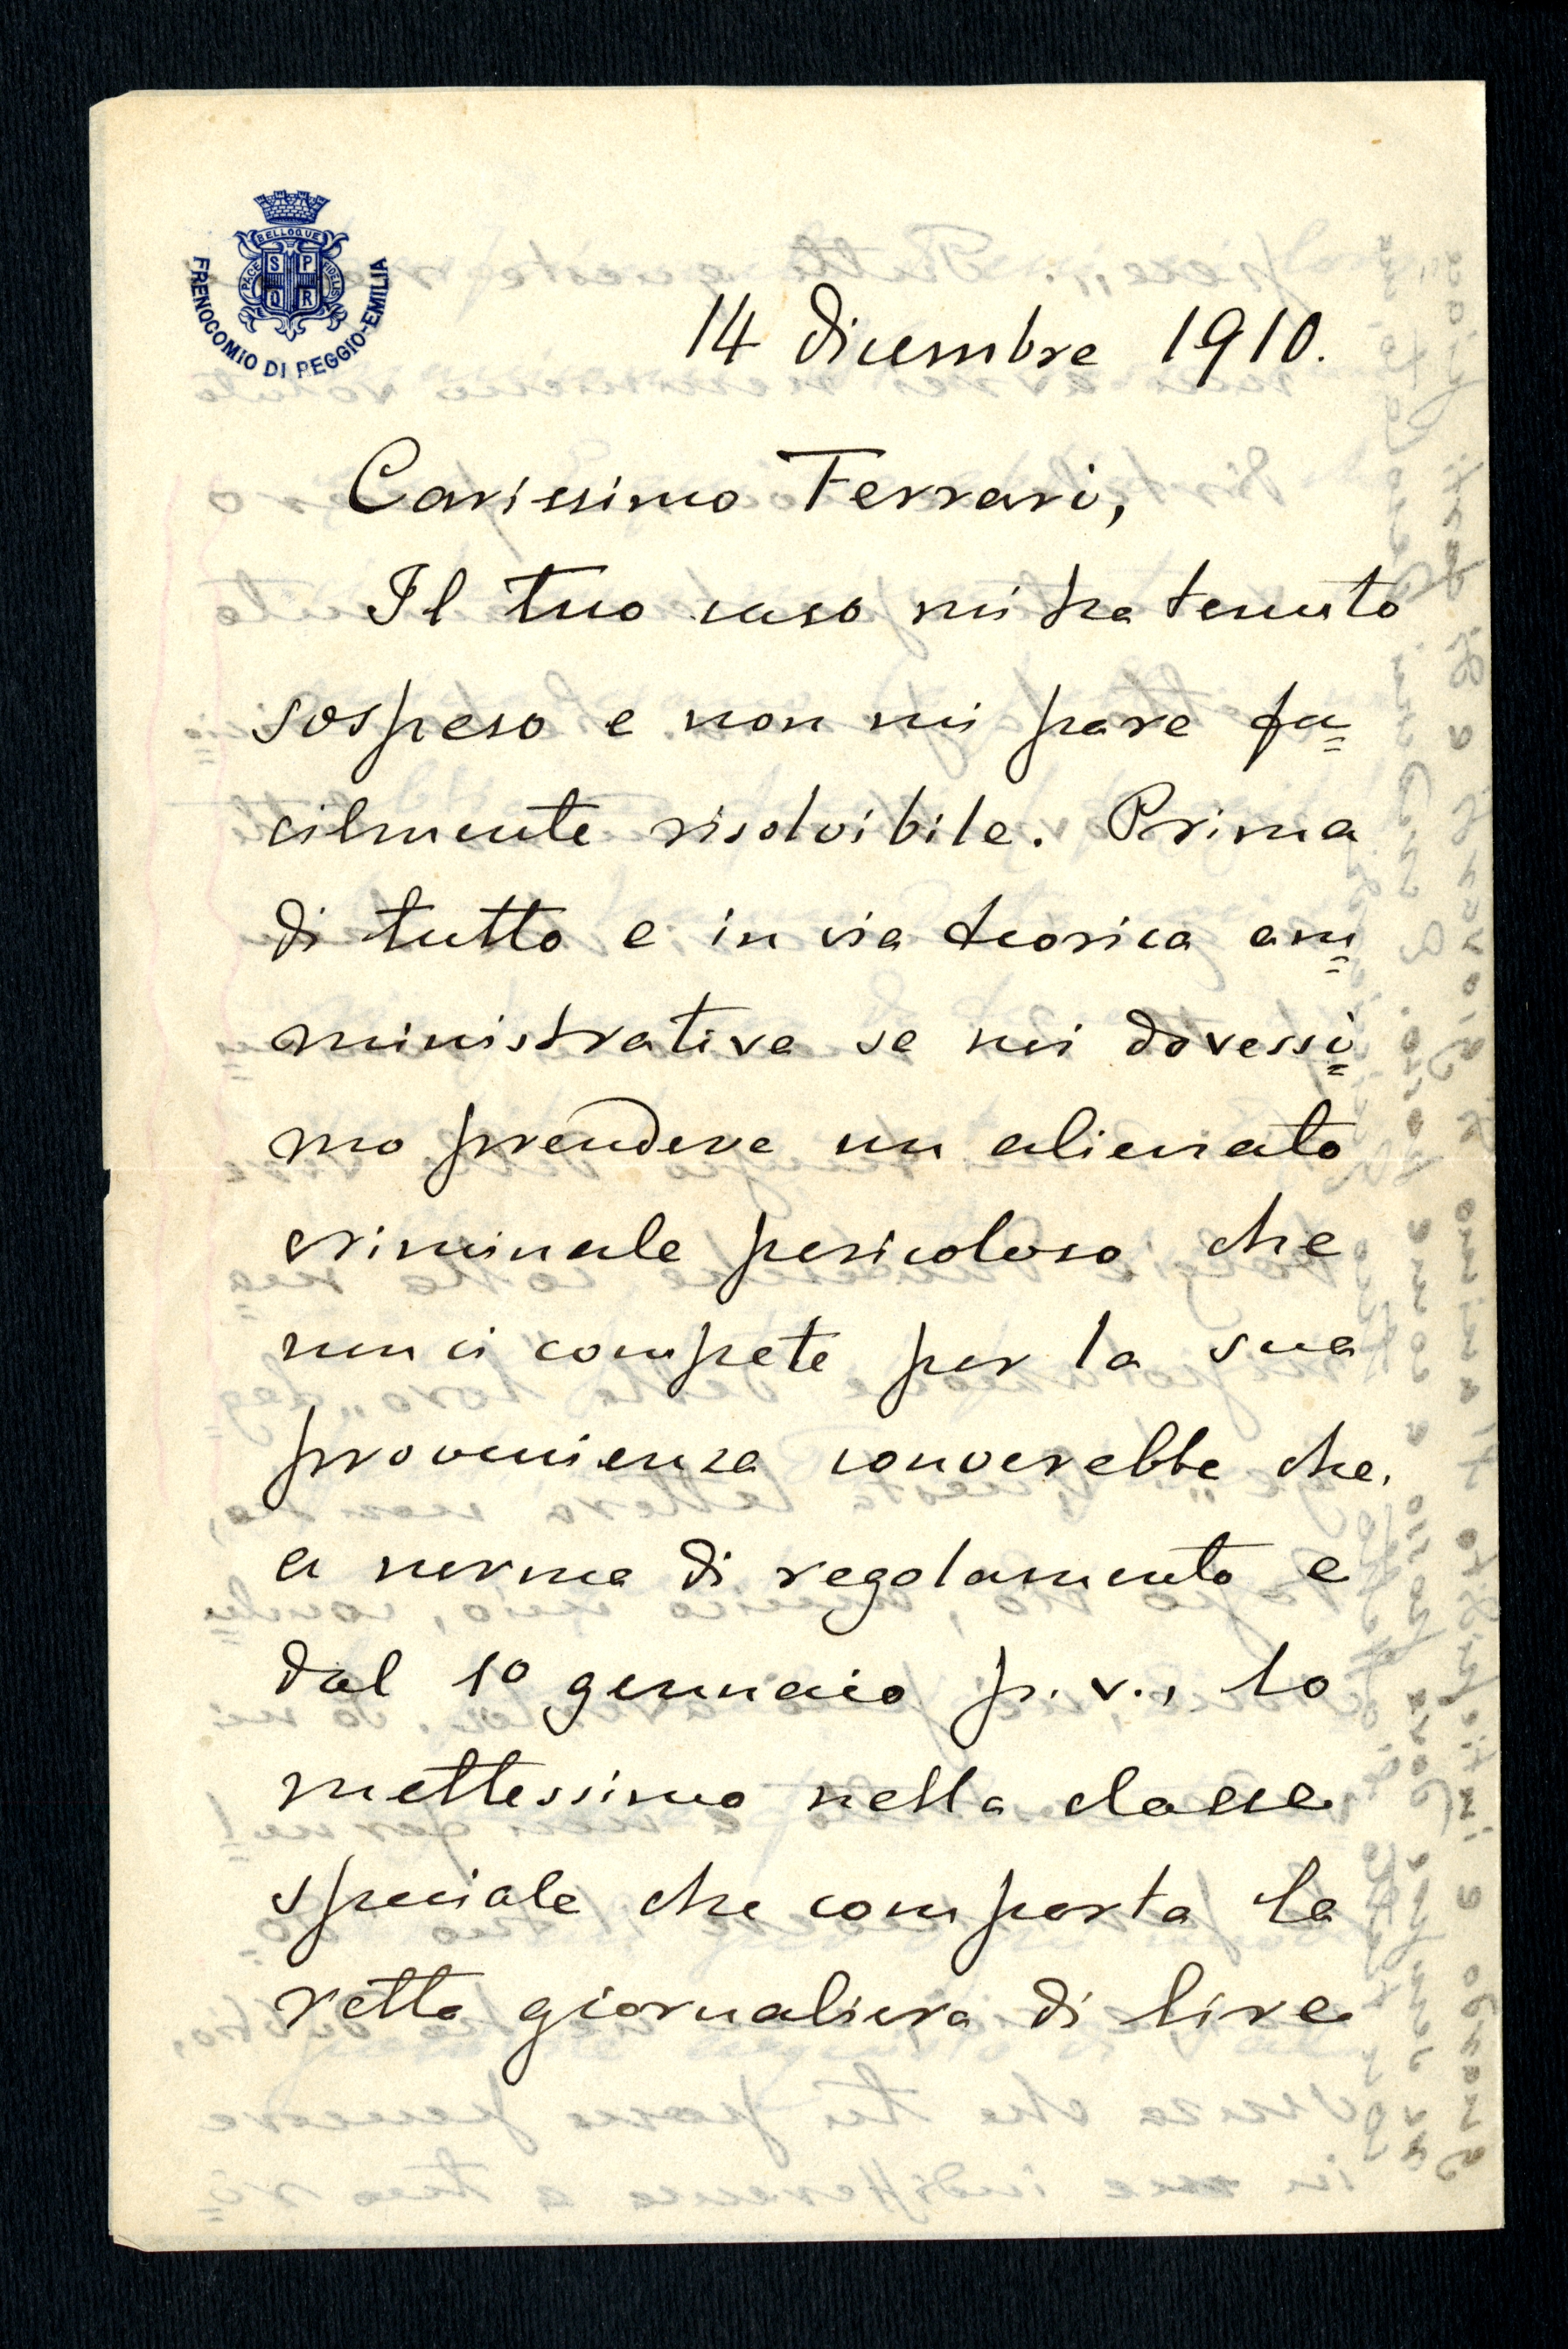 BELLOQUE
PACE
FIDELIS
S P
Q R
FRENOCOMIO DI REGGIO-EMILIA
14 dicembre 1910.
Carissimo Ferrari,
Il tuo caso mi ha tenuto
sospeso e non mi pare fa=
cilmente risolvibile. Prima
di tutto e in via teorica am=
ministrativa se noi dovessi=
mo prendere un alienato
criminale pericoloso che
non ci compete per la sua
provenienza converebbe che,
a norma di regolamento e
dal 1º gennaio p. v., lo
mettessimo nella classe
speciale che comporta la
retta giornaliera di lire